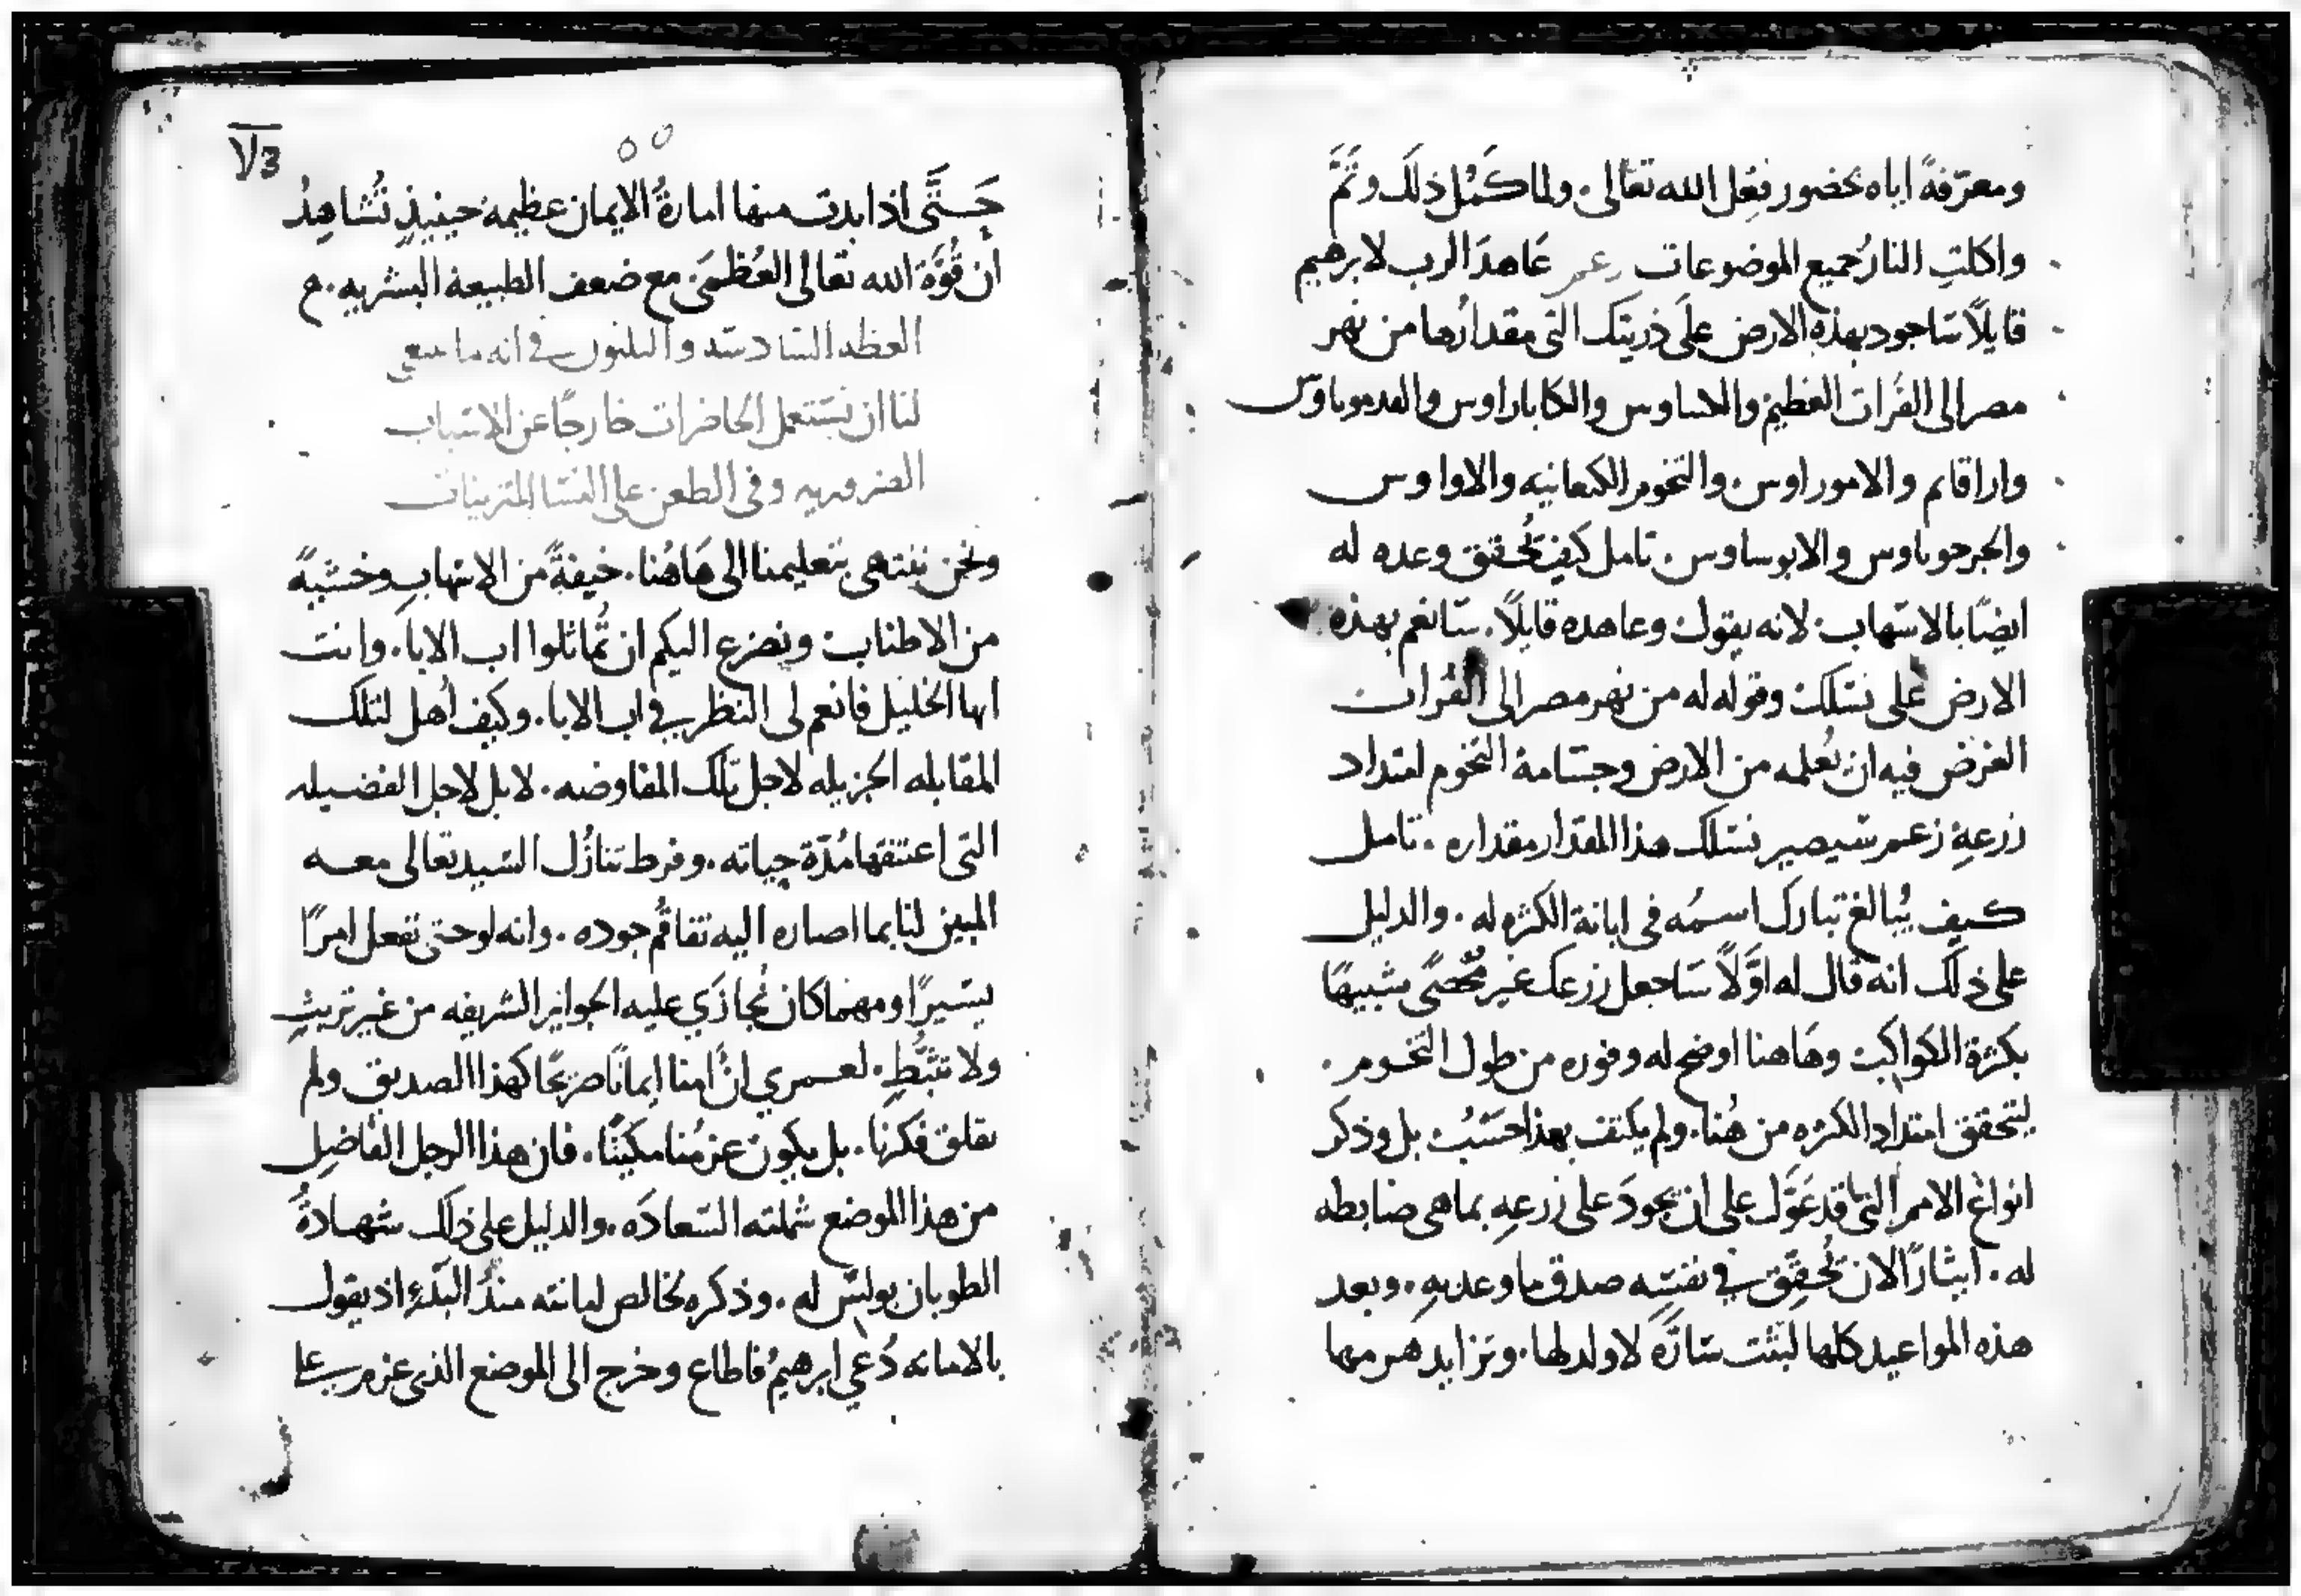 ومعرّفةً اياه بحضور فِعل الله تعالى. ولما كَمُل ذلك وتَمَّ
واكلتِ النارُ جميع الموضوعات زعم عَاهدَ الرب لابرهيم
قايلًا ساجود بهذه الارض علَى ذريتك التى مقدارُها من نهر
مصر الى الفُرات العَظيم والاساوس والكاباراوس والقدموناوس
واراقايم والاموراوس. والتخوم الكنعانيه والاواوس
والجرجوناوس والابوساوس. تامل كيف تُحقق وعده له
ايضًا بالاسهاب. لانه يقول وعاهده قايلًا. سانعم بهذه
الارض على نسلك وقوله له من نهر مصر الى الفُرات
الغرض فيه ان نُعلمه من الارض وجسامة التخوم امتداد
زرعهِ زعم سيصير نسلك هذا المقدار مقداره. تامل
كيف يُبالغ تبارك اسمُه فى ابانة الكثره له. والدليل
على ذلك انه قال له اوَّلًا ساجعل زرعك غير مُحصًى شبيهًا
بكثرة الكواكب وهَاهنا اوضح له وفوره من طول التخوم.
ليتحقق امتداد الكثره من هُنا. ولم يكتف بهذا حَسبُ بل وذكر
انواع الامم التى قد عَوَّل على ان يجودَ على زرعهِ بما هى ضابطه
له. ايثارًا لان تُحقِّق في نفسِه صدق ما وعد بهِ. وبعد
هذه المواعيد كلها لبثت سارَّه لا ولد لها. وتزايد هرمها
٧٣
حَتَّى اذا بدت منها امارةُ الايمان عظيمة حينيذٍ تُشاهِدُ
أن قُوَّة الله تعالى العُظمَى مع ضعف الطبيعة البشريه. م
العظه السادسه والثلثون في انه ما ينبغي
لنا ان نستعمل الحاضرات خارجًا عن الاسباب
الضروريه وفى الطعن على النسا المتزينات
ونحن ننتهى بتعليمنا الى هَاهُنا. خيفةً من الاسهابِ وخشيةً
من الاطناب ونضرع اليكم ان تُماثلوا اب الابا. وانت
ايها الخليل فانعم لى النظر في اب الابا. وكيف اُهل لتلك
المقابله الجزيله لاجل تلك المفاوضه. لا بل لاجل الفضيله
التى اعتنقها مُدّة حياته. وفرط تنازُل السيد تعالى معه
المبين لنا بما اصاره اليه تفاقُم جوده. وانه لو حتى نفعل امرًا
يسيرًا ومهما كان نُجازَي عليه الجوايز الشريفه من غير تريثٍ
ولا تثبُّطٍ. لعمري انْ اَمنا ايمانًا صريحًا كهذا الصديق ولم
يقلق فكرنا. بل يكون عزمُنا مكينًا. فان هذا الرجل الفاضِل
من هذا الموضع شملته السعادَه. والدليل على ذلك شهادةُ
الطوبان بولس له. وذكره لخالص امانته منذُ البَدءِ اذ يقول
بالامانه دُعي ابرهيمُ فاطاع وخرج الى الموضع الذى عزم على